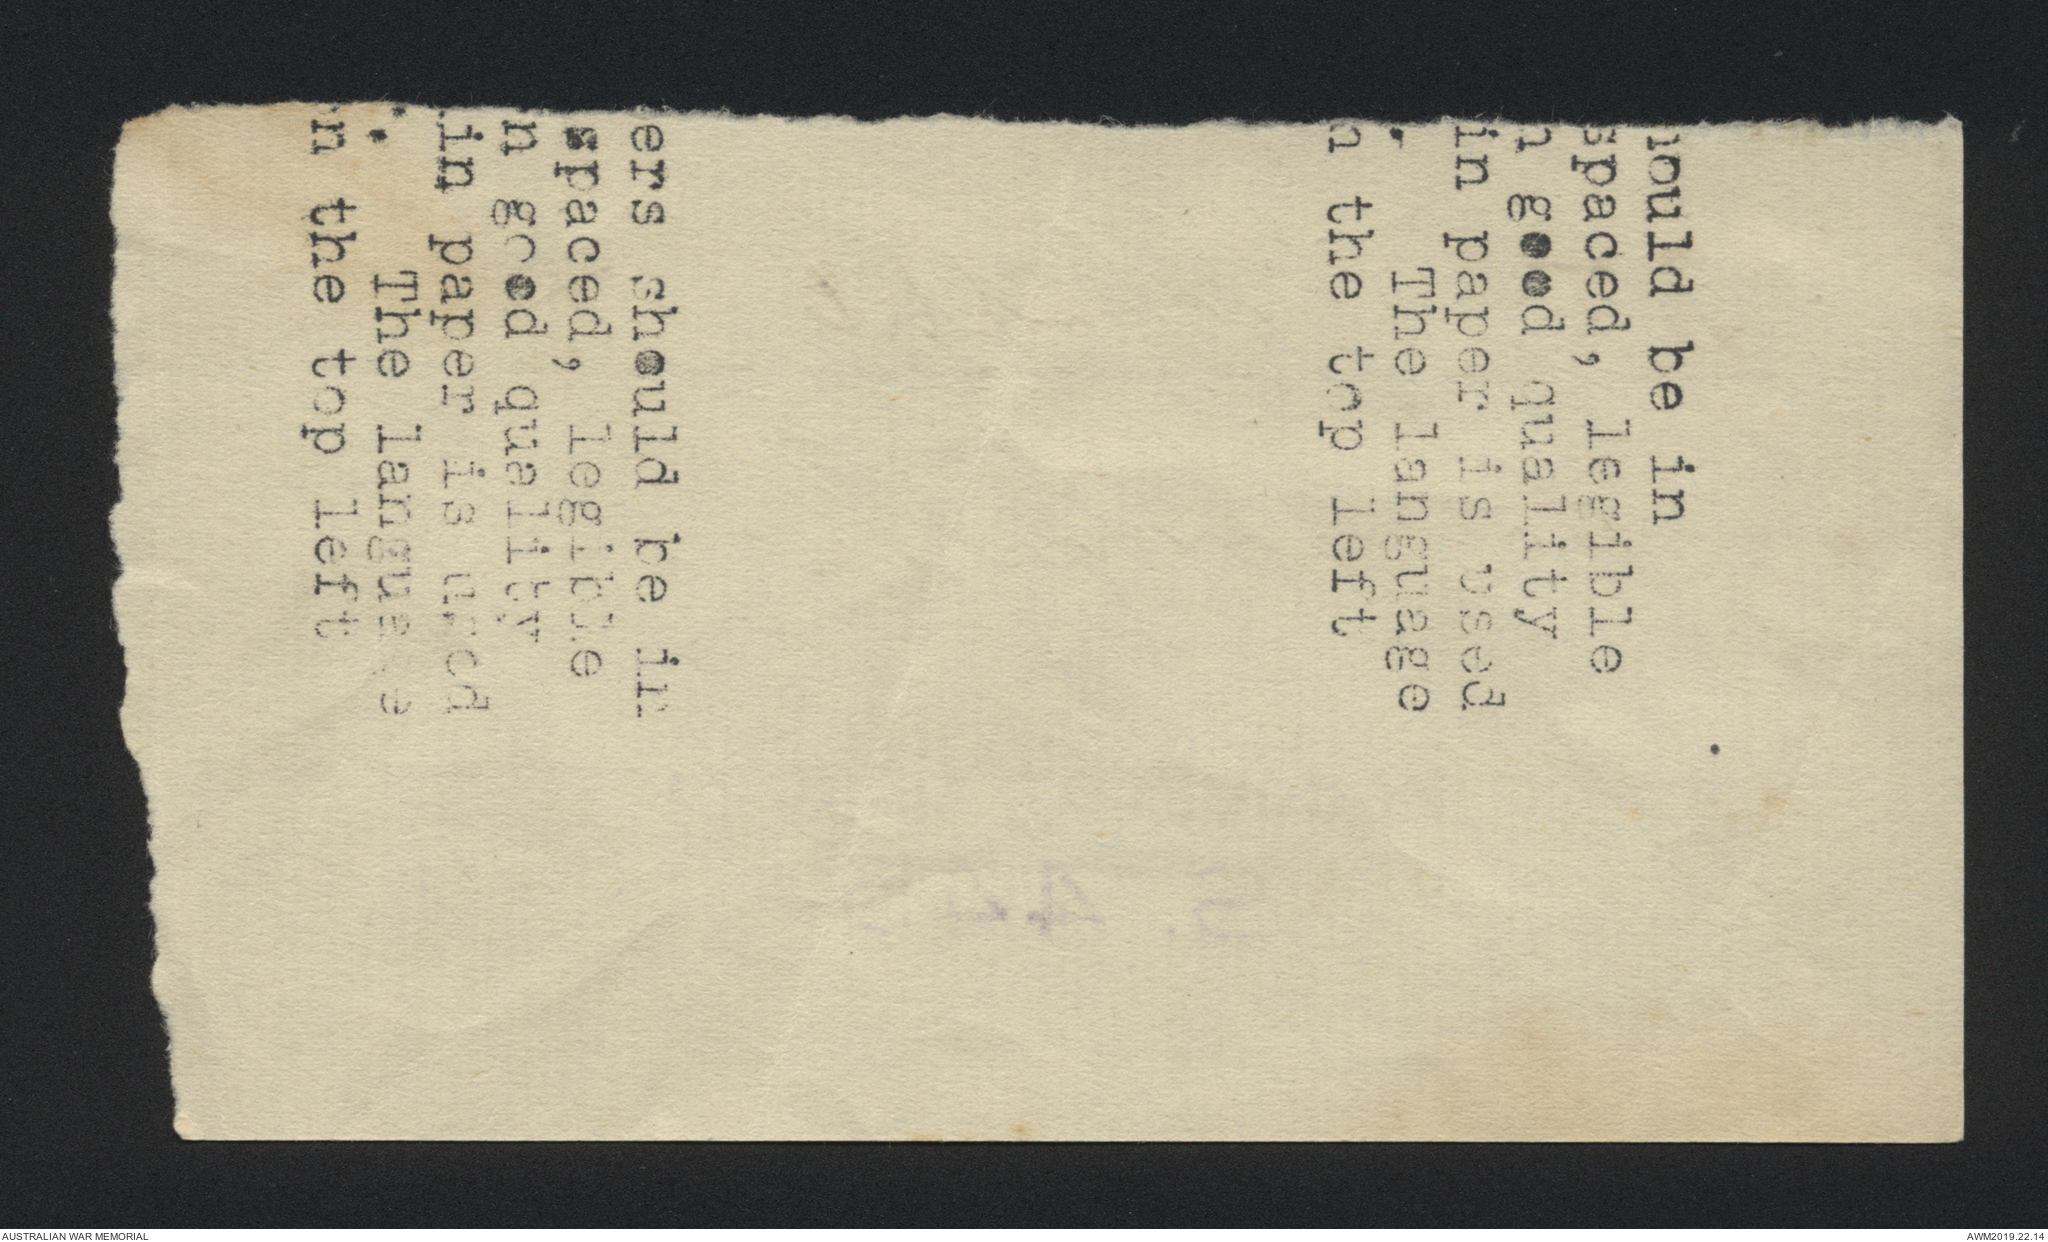 ould be in
spaced, legible
n good quality
in paper is used
. The language
n the top left
ers should be in
spaced, legible
n good quality
in paper is used
. The language
n the top left
AUSTRALIAN WAR MEMORIAL
AWM2019.22.14